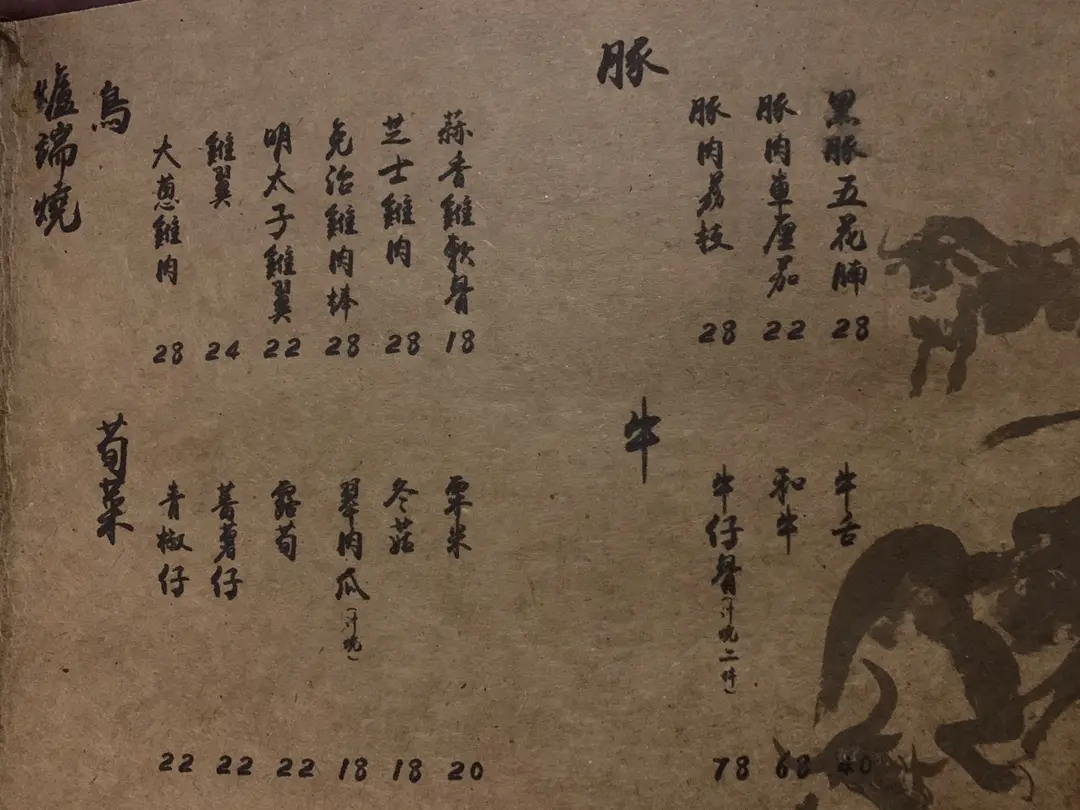 爐端燒
鳥
大蔥雞肉 28
雞翼 24
明太子雞翼 22
免治雞肉棒 28
芝士雞肉 28
蒜香雞軟骨 18
豚
豚肉荔枝 28
豚肉車厘茄 22
黑豚五花腩 28
荀菜
青椒仔 22
薯蓉仔 22
露荀 22
翠肉瓜 18
冬菇 18
粟米 20
牛
牛仔骨 78
和牛 68
牛舌 40